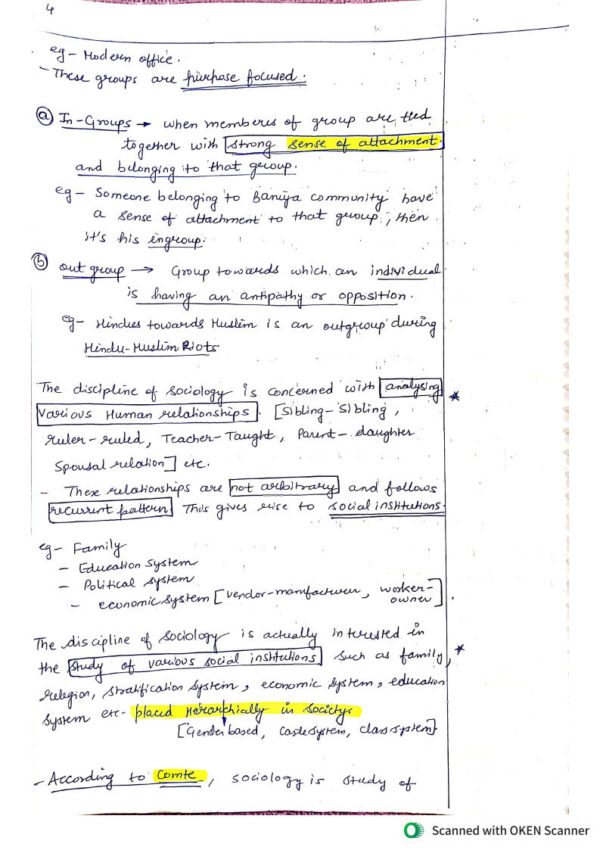 4
eg - Modern office.
- These groups are purchase focused.
(a) In-Groups → when memberes of group are tied
together with strong sense of attachment
and belonging to that group.
eg - Someone belonging to Baniya community have
a sense of attachment to that group, then
it's his ingroup.
(b) out group → Group towards which an individual
is having an antipathy or opposition.
eg - Hindues towards Muslim is an outgroup during
Hindu-Muslim Riots
The discipline of sociology is concerned with analysing *
various Human relationships. [Sibling-Sibling,
ruler-ruled, Teacher-Taught, Parent-daughter
Spousal relation] etc.
- These relationships are not arbitrary and follows
recurrent pattern. This gives rise to social institutions.
eg - Family
- Education system
- Political system
- economic system [vendor-manufacturer, worker-
owner].
The discipline of sociology is actually interested in
the study of various social institutions such as family, *
religion, stratification system, economic system, education
system etc. placed Hierarchially in societys
[Gender based, caste system, class system]
- According to Comte, sociology is study of
Scanned with OKEN Scanner